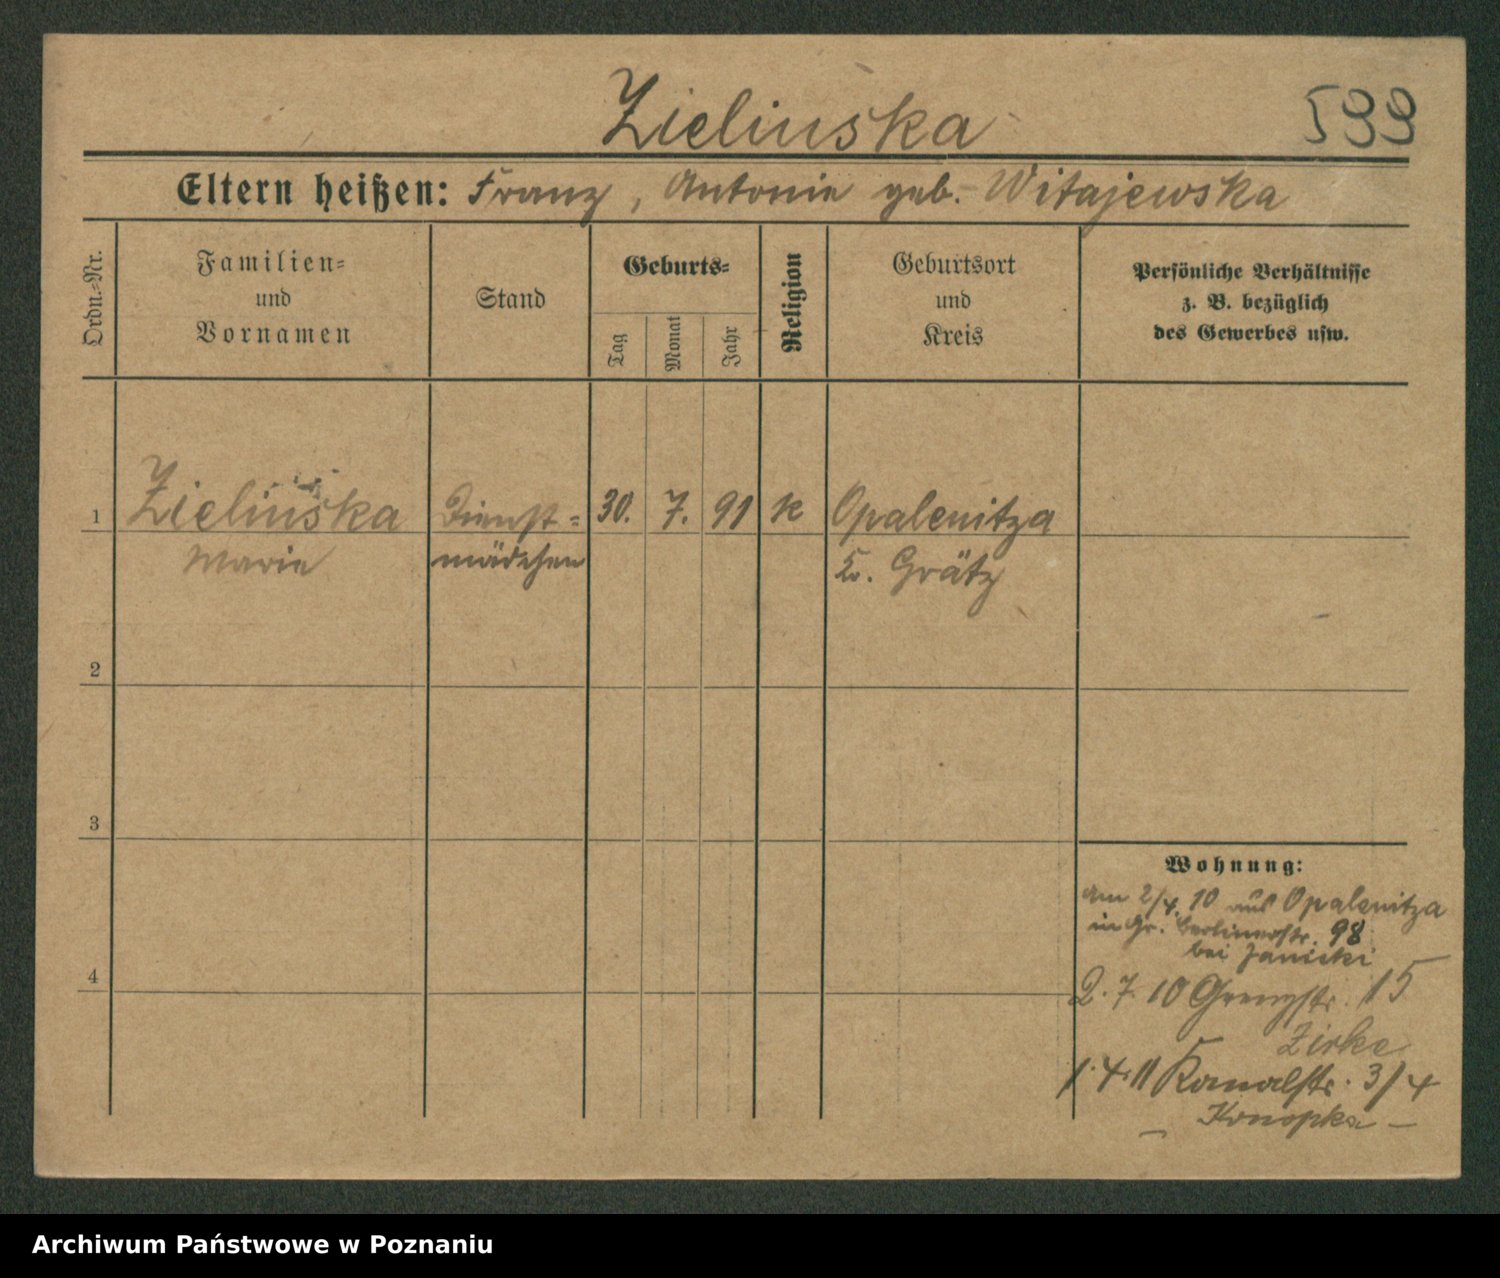 Zielinska 599
Eltern heißen: Franz, Antonie geb. Witajewska
Ordn.-Nr.
Familien-
und
Vornamen
Stand
Geburts-
Tag
Monat
Jahr
Religion
Geburtsort
und
Kreis
Persönliche Verhältnisse
z. B. bezüglich
des Gewerbes usw.
1 Zielinska Dienst= 30. 7. 91 k Opalenitza
Marie mädchen Kr. Grätz
2
3
4
Wohnung:
am 2/4. 10 aus Opalenitza
in Gr. Berlinerstr. 98
bei Janicki
2. 7. 10 Grenzstr. 15
Zirke
1. 4. 11 Kanalstr. 3/4
— Konopka —
Archiwum Państwowe w Poznaniu